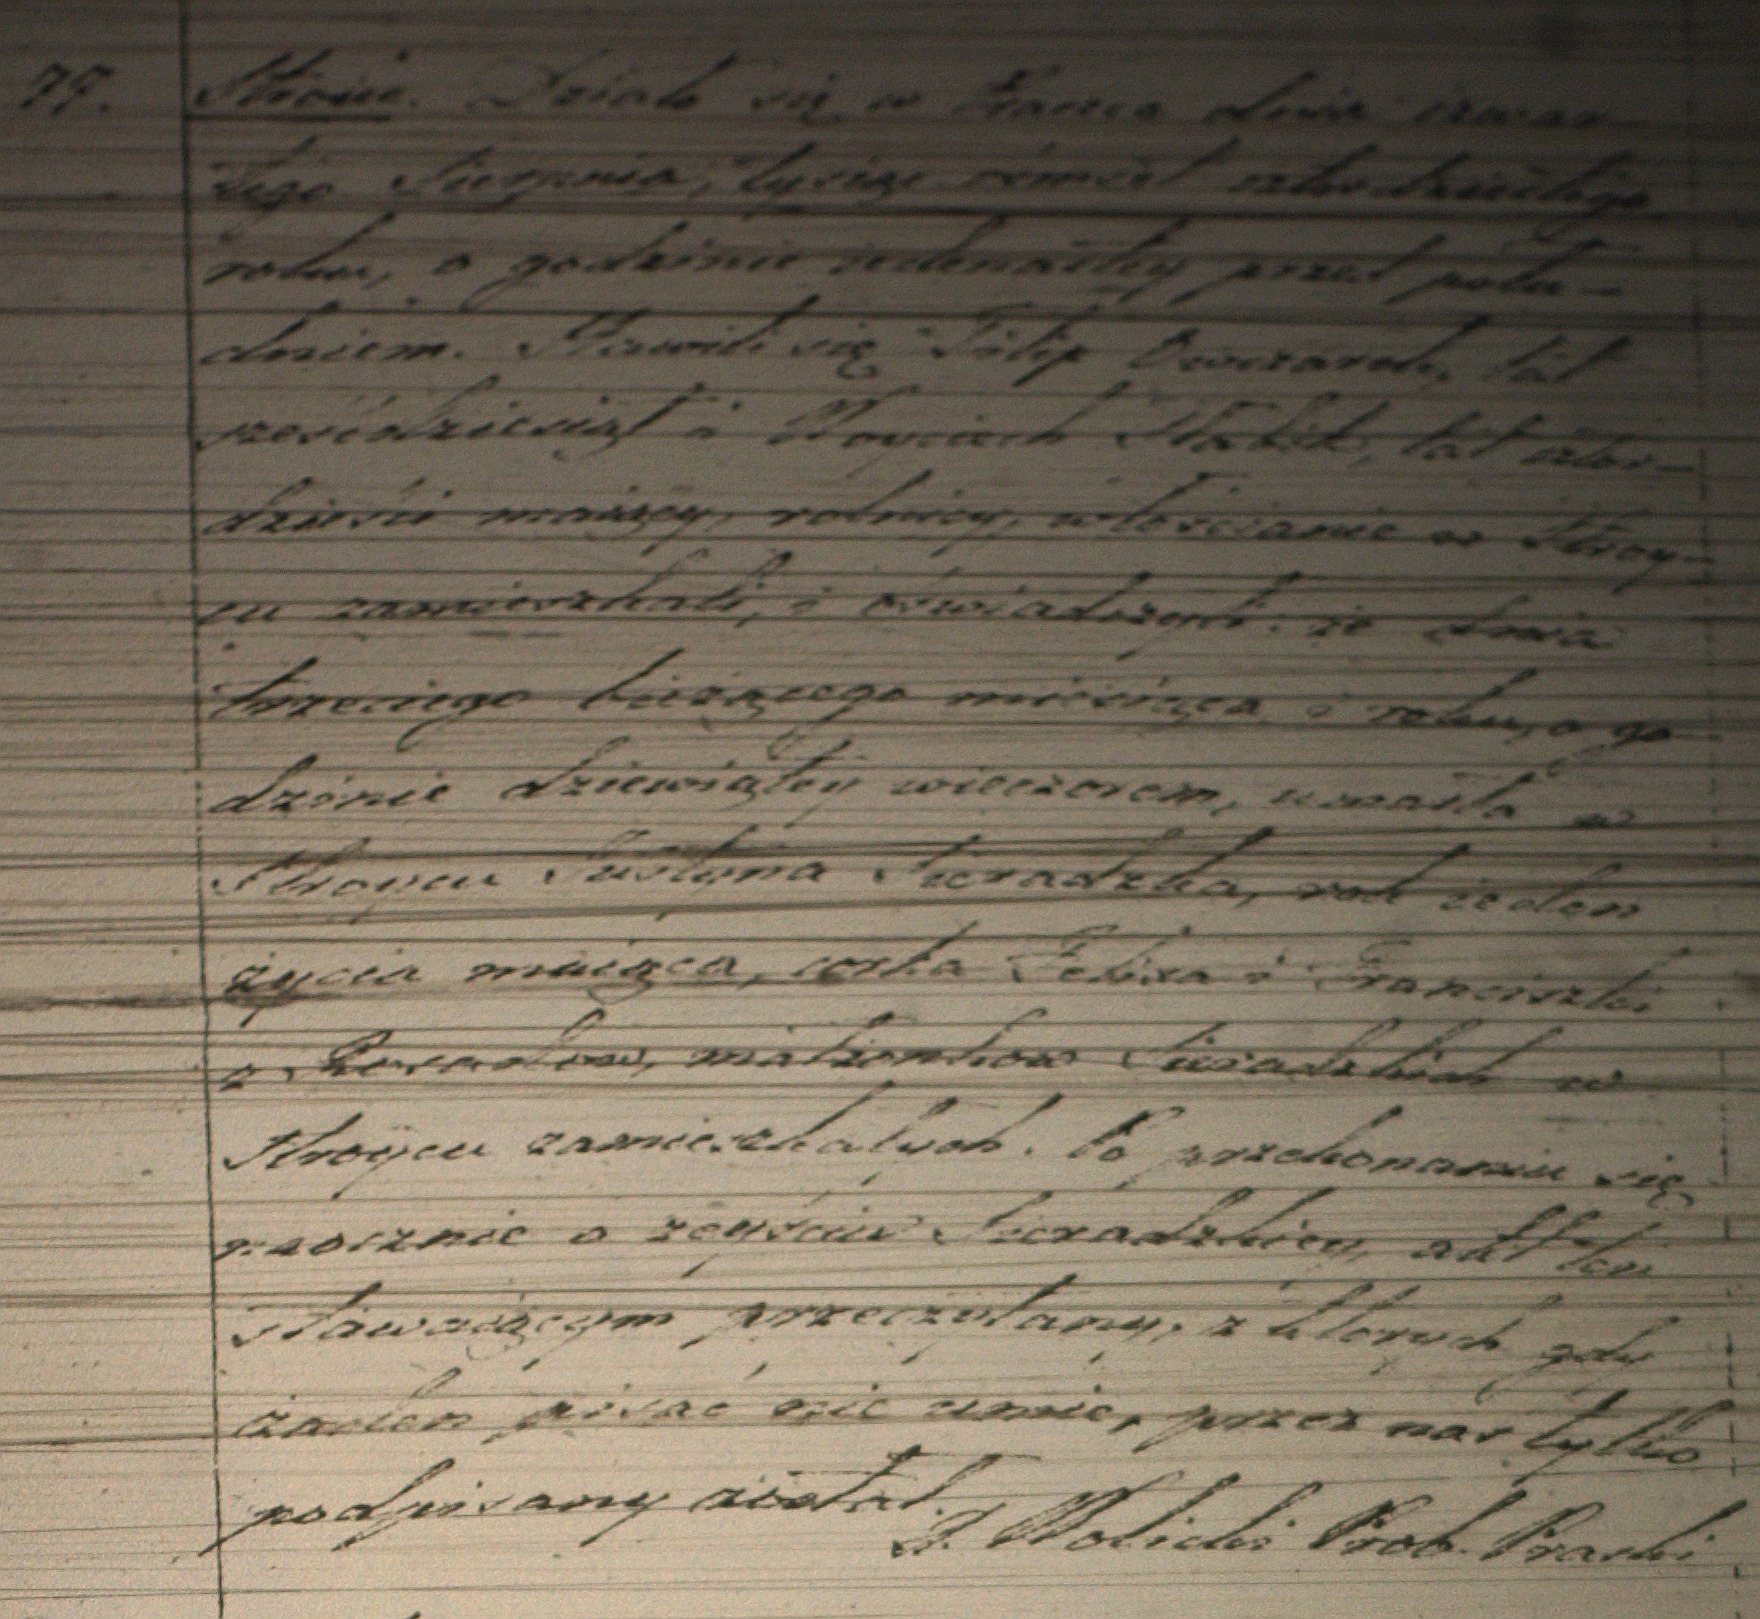 77. Stroiec. Działo się w Praszce dnia czwar
tego Sierpnia, tysiąc ośmset czterdziestego
roku, o godzinie iedenastey przed połu-
dniem. Stawili się Filip Owczarek, lat
sześćdziesiąt i Woyciech Statik, lat czter-
dzieści maiący, rolnicy, włościanie w Stroy-
cu zamieszkali, i oświadczyli: że dnia
trzeciego bieżącego miesiąca i roku, o go
dzinie dziewiątey wieczorem, umarła w
Stroycu Justyna Sieradzka, rok ieden
życia maiąca, córka Felixa i Franciszki
z małżonków Sieradzkich w
Stroycu zamieszkałych. Po przekonaniu się
naocznie o zeyściu Sieradzkiey, akt ten
stawaiącym przeczytany, z których gdy
żaden pisać nie umie, przez nas tylko
podpisany został.
J. Wolicki Prob. Praszki